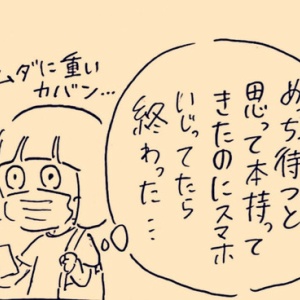 ムダに重い
カバン…
めっち待つと
思って本持って
きたのにスマホ
いじってたら
終わった…